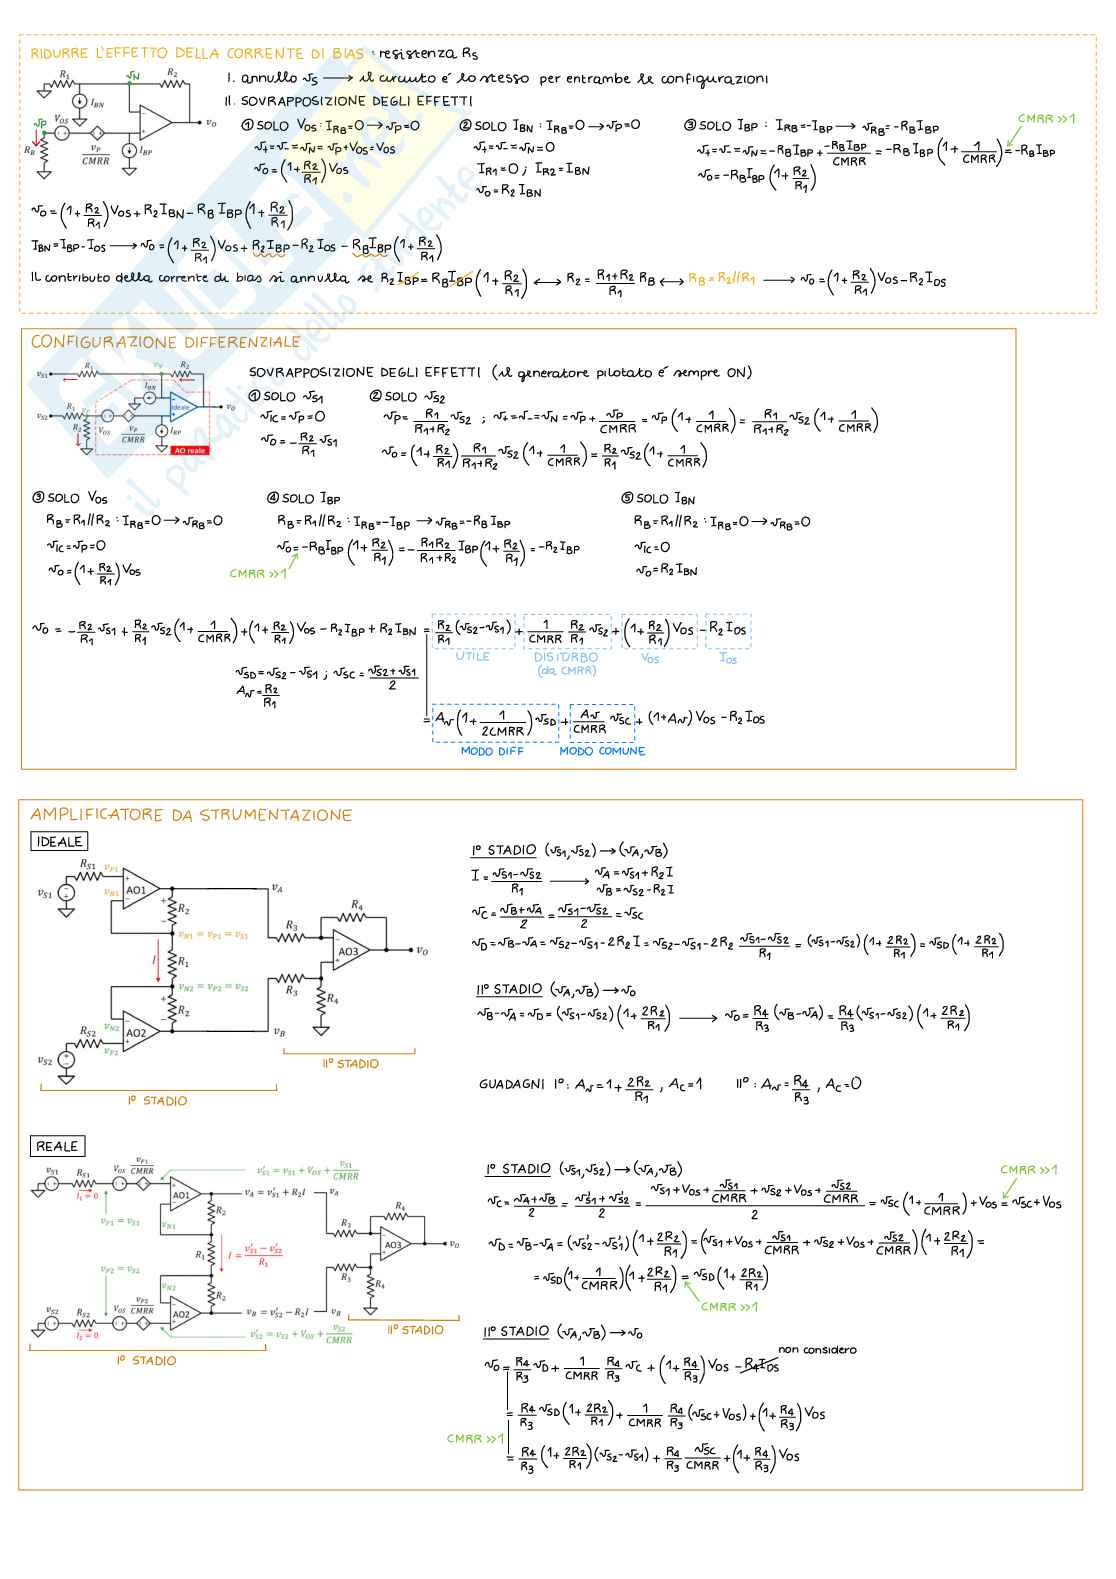 RIDURRE L'EFFETTO DELLA CORRENTE DI BIAS : resistenza RS
R1 vN R2
IBN
vP VOS
vO
RB vP/CMRR IBP
I. annullo vS ⟶ il circuito é lo stesso per entrambe le configurazioni
II. SOVRAPPOSIZIONE DEGLI EFFETTI
① SOLO VOS : IRB=0 → vP=0
v+=v-=vN=vP+VOS=VOS
vO=(1+R2/R1)VOS
② SOLO IBN : IRB=0 → vP=0
v+=v-=vN=0
IR1=0 ; IR2=IBN
vO=R2 IBN
③ SOLO IBP : IRB=-IBP ⟶ vRB=-RB IBP
CMRR >>1
v+=v-=vN=-RB IBP + -RB IBP/CMRR = -RB IBP (1+1/CMRR) = -RB IBP
vO=-RB IBP (1+R2/R1)
vO=(1+R2/R1)VOS+R2 IBN-RB IBP(1+R2/R1)
IBN=IBP-IOS ⟶ vO=(1+R2/R1)VOS+R2 IBP-R2 IOS-RB IBP(1+R2/R1)
Il contributo della corrente di bias si annulla se R2 IBP=RB IBP(1+R2/R1) ⟷ R2=R1+R2/R1 RB ⟷ RB=R2//R1 ⟶ vO=(1+R2/R1)VOS-R2 IOS
CONFIGURAZIONE DIFFERENZIALE
vS1 R1 vN R2
IBN
vS2 R1 vP Ideale vO
R2 VOS vP/CMRR IBP
AO reale
SOVRAPPOSIZIONE DEGLI EFFETTI (il generatore pilotato é sempre ON)
① SOLO vS1
vIC=vP=0
vO=-R2/R1 vS1
② SOLO vS2
vP=R1/R1+R2 vS2 ; v+=v-=vN=vP+vP/CMRR=vP(1+1/CMRR)=R1/R1+R2 vS2(1+1/CMRR)
vO=(1+R2/R1)R1/R1+R2 vS2(1+1/CMRR)=R2/R1 vS2(1+1/CMRR)
③ SOLO VOS
RB=R1//R2 : IRB=0 → vRB=0
vIC=vP=0
vO=(1+R2/R1)VOS
④ SOLO IBP
RB=R1//R2 : IRB=-IBP → vRB=-RB IBP
vO=-RB IBP(1+R2/R1)=-R1R2/R1+R2 IBP(1+R2/R1)=-R2 IBP
CMRR >>1
⑤ SOLO IBN
RB=R1//R2 : IRB=0 → vRB=0
vIC=0
vO=R2 IBN
vO = -R2/R1 vS1+R2/R1 vS2(1+1/CMRR)+(1+R2/R1)VOS-R2 IBP+R2 IBN = R2/R1(vS2-vS1)+1/CMRR R2/R1 vS2+(1+R2/R1)VOS-R2 IOS
UTILE DISTURBO (da CMRR) VOS IOS
vSD=vS2-vS1 ; vSC=vS2+vS1/2
Av=R2/R1
= Av(1+1/2CMRR)vSD+Av/CMRR vSC+(1+Av)VOS-R2 IOS
MODO DIFF MODO COMUNE
AMPLIFICATORE DA STRUMENTAZIONE
IDEALE
RS1 vP1
vS1 vN1 AO1 vA
R2 R3 R4
vN1 = vP1 = vS1
I R1 AO3 vO
vN2 = vP2 = vS2
R2 R3 R4
vN2
RS2 vP2 AO2 vB
vS2
II° STADIO
I° STADIO
I° STADIO (vS1,vS2) → (vA,vB)
I=vS1-vS2/R1 ⟶ vA=vS1+R2 I
vB=vS2-R2 I
vC=vB+vA/2=vS1-vS2/2=vSC
vD=vB-vA=vS2-vS1-2R2 I=vS2-vS1-2R2 vS1-vS2/R1=(vS1-vS2)(1+2R2/R1)=vSD(1+2R2/R1)
II° STADIO (vA,vB) → vO
vB-vA=vD=(vS1-vS2)(1+2R2/R1) ⟶ vO=R4/R3(vB-vA)=R4/R3(vS1-vS2)(1+2R2/R1)
GUADAGNI I° : Av=1+2R2/R1 , AC=1 II° : Av=R4/R3 , AC=0
REALE
vS1 RS1 VOS vP1/CMRR v'S1 = vS1 + VOS + vS1/CMRR
I1 = 0 AO1 vA = v'S1 + R2I vA
vP1 = vS1 vN1 R2 R3 R4
R1 I = v'S1 − v'S2/R1 AO3 vO
vP2 = vS2 vN2 R2 R3 R4
vS2 RS2 VOS vP2/CMRR AO2 vB = v'S2 − R2I vB
I2 = 0 v'S2 = vS2 + VOS + vS2/CMRR
II° STADIO
I° STADIO
I° STADIO (vS1,vS2) → (vA,vB)
CMRR >>1
vC=vA+vB/2=v'S1+v'S2/2=vS1+VOS+vS1/CMRR+vS2+VOS+vS2/CMRR/2=vSC(1+1/CMRR)+VOS=vSC+VOS
vD=vB-vA=(vS2'-vS1')(1+2R2/R1)=(vS1+VOS+vS1/CMRR+vS2+VOS+vS2/CMRR)(1+2R2/R1)=
=vSD(1+1/CMRR)(1+2R2/R1)=vSD(1+2R2/R1)
CMRR >>1
II° STADIO (vA,vB) → vO
non considero
vO=R4/R3 vD+1/CMRR R4/R3 vC+(1+R4/R3)VOS-R4 IOS
=R4/R3 vSD(1+2R2/R1)+1/CMRR R4/R3(vSC+VOS)+(1+R4/R3)VOS
CMRR >>1
=R4/R3(1+2R2/R1)(vS2-vS1)+R4/R3 vSC/CMRR+(1+R4/R3)VOS
SKUOLA.net
il paradiso dello studente